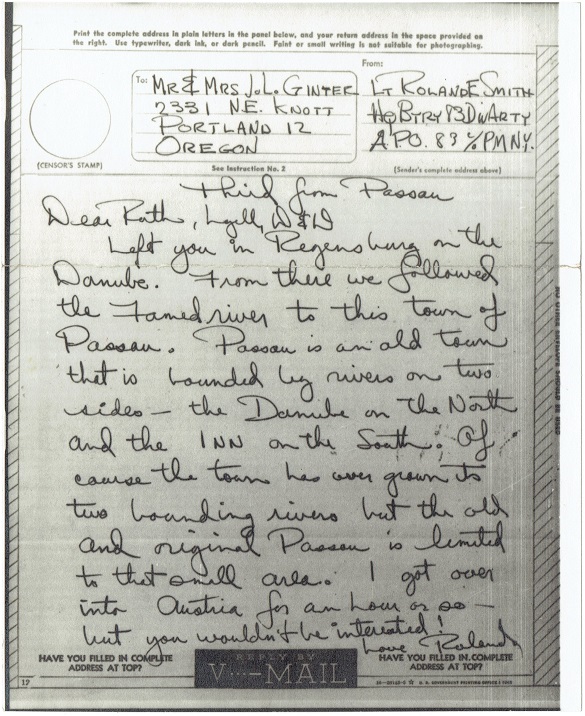 Print the complete address in plain letters in the panel below, and your return address in the space provided on
the right. Use typewriter, dark ink, or dark pencil. Faint or small writing is not suitable for photographing.
To:
MR & MRS J.L. GINTER
2331 N.E. KNOTT
PORTLAND 12
OREGON
From:
LT ROLAND E SMITH
HQ BTRY 83 DIVARTY
A.P.O. 83 % PM N.Y.
(CENSOR'S STAMP)
See Instruction No. 2
(Sender's complete address above)
Third from Passau
Dear Ruth, Lyell, D & D
Left you in Regensburg on the
Danube. From there we followed
the Famed river to this town of
Passau. Passau is an old town
that is bounded by rivers on two
sides — the Danube on the North
and the INN on the South. Of
course the town has over grown its
two bounding rivers but the old
and original Passau is limited
to that small area. I got over
into Austria for an hour or so —
but you wouldn't be interested!
Love Roland
HAVE YOU FILLED IN COMPLETE
ADDRESS AT TOP?
REPLY BY
V···—MAIL
HAVE YOU FILLED IN COMPLETE
ADDRESS AT TOP?